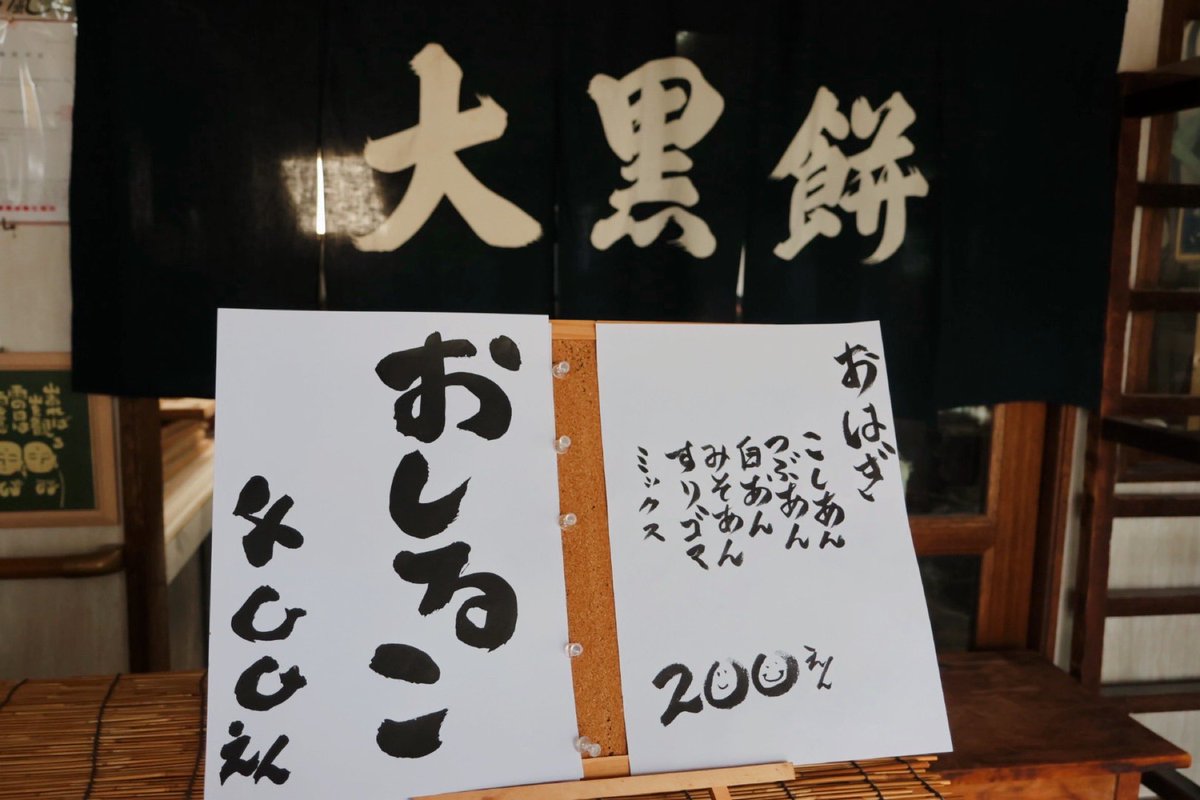 大黒餅
おしるこ
400えん
おはぎ
こしあん
つぶあん
白あん
みそあん
すりゴマ
ミックス
200えん